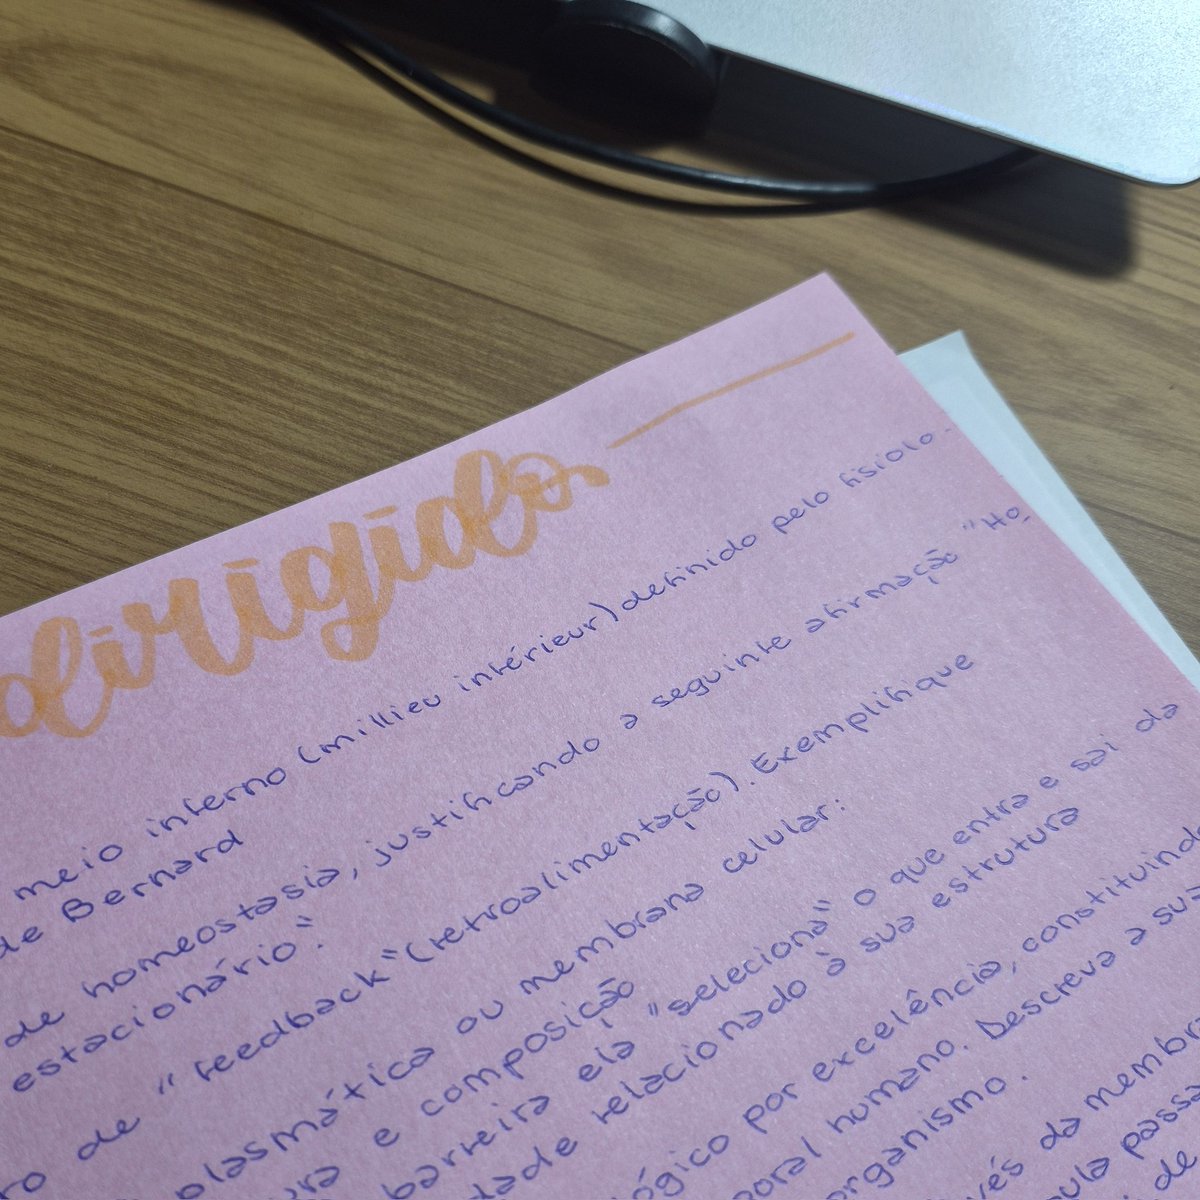 dirigido
meio interno (millieu intérieur) definido pelo fisiolo-
de Bernard
de homeostasia, justificando a seguinte afirmação "Ho
estacionário".
de "feedback" (retroalimentação). Exemplifique
plasmática ou membrana celular:
e composição
barreira ela "seleciona" o que entra e sai da
relacionado à sua estrutura
por excelência, constituindo
humano. Descreva a sua
organismo.
da membr
passa
de